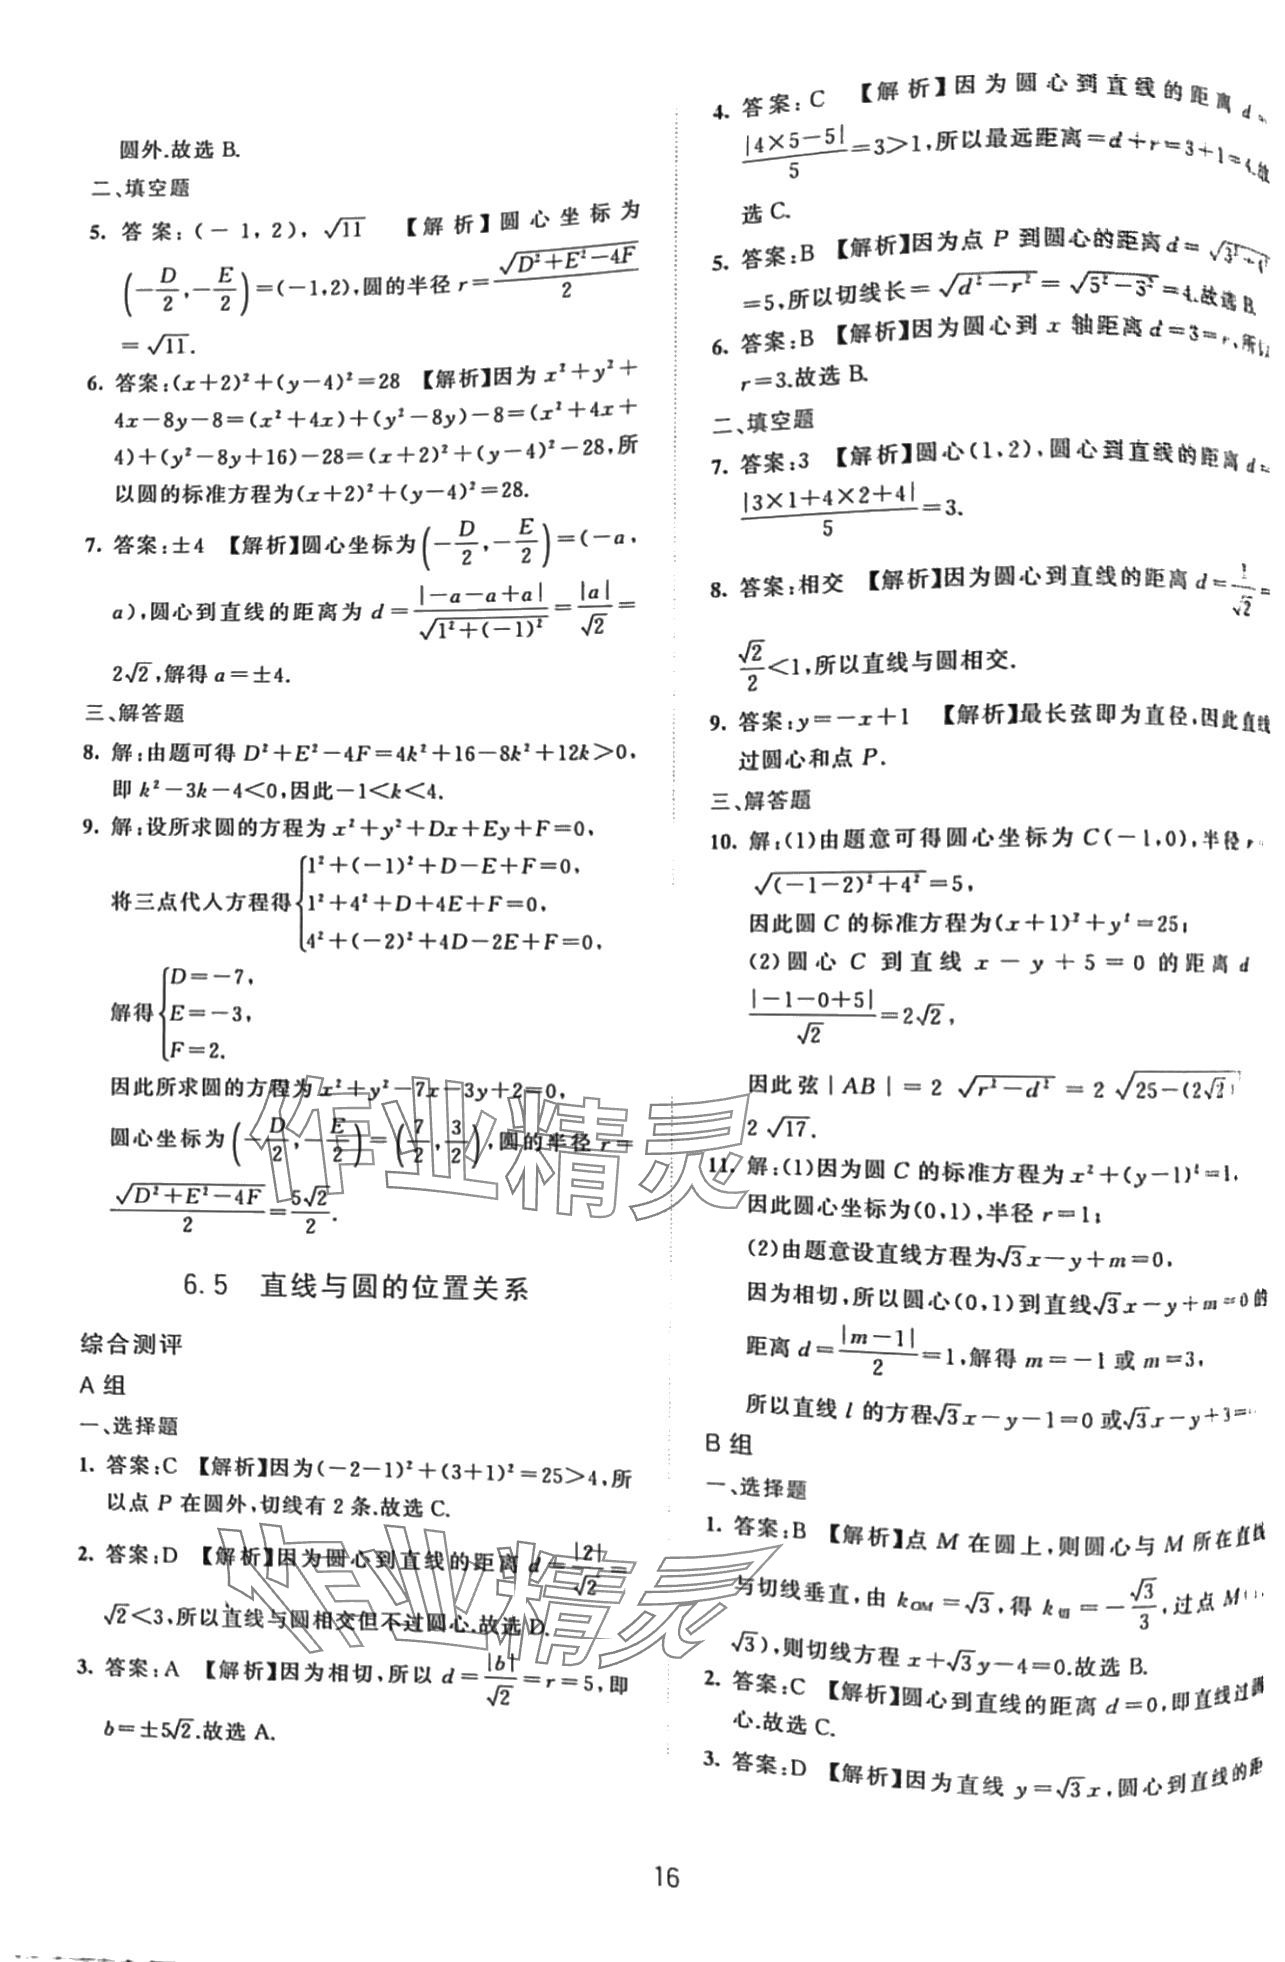 圆外.故选 B.
二、填空题
5. 答案:(－1,2),√11 【解析】圆心坐标为
(－D/2,－E/2)＝(－1,2),圆的半径 r＝√(D²＋E²－4F)/2
＝√11.
6. 答案:(x＋2)²＋(y－4)²＝28 【解析】因为 x²＋y²＋
4x－8y－8＝(x²＋4x)＋(y²－8y)－8＝(x²＋4x＋
4)＋(y²－8y＋16)－28＝(x＋2)²＋(y－4)²－28,所
以圆的标准方程为(x＋2)²＋(y－4)²＝28.
7. 答案:±4 【解析】圆心坐标为(－D/2,－E/2)＝(－a,
a),圆心到直线的距离为 d＝|－a－a＋a|/√(1²＋(－1)²)＝|a|/√2＝
2√2,解得 a＝±4.
三、解答题
8. 解:由题可得 D²＋E²－4F＝4k²＋16－8k²＋12k＞0,
即 k²－3k－4＜0,因此－1＜k＜4.
9. 解:设所求圆的方程为 x²＋y²＋Dx＋Ey＋F＝0,
将三点代人方程得{1²＋(－1)²＋D－E＋F＝0,
1²＋4²＋D＋4E＋F＝0,
4²＋(－2)²＋4D－2E＋F＝0,
解得{D＝－7,
E＝－3,
F＝2.
因此所求圆的方程为 x²＋y²－7x－3y＋2＝0,
圆心坐标为(－D/2,－E/2)＝(7/2,3/2),圆的半径 r＝
√(D²＋E²－4F)/2＝5√2/2.
6.5 直线与圆的位置关系
综合测评
A 组
一、选择题
1. 答案:C 【解析】因为(－2－1)²＋(3＋1)²＝25＞4,所
以点 P 在圆外,切线有 2 条.故选 C.
2. 答案:D 【解析】因为圆心到直线的距离 d＝|2|/√2＝
√2＜3,所以直线与圆相交但不过圆心.故选 D.
3. 答案:A 【解析】因为相切,所以 d＝|b|/√2＝r＝5,即
b＝±5√2.故选 A.
4. 答案:C 【解析】因为圆心到直线的距离 d＝
|4×5－5|/5＝3＞1,所以最远距离＝d＋r＝3＋1＝4.故
选 C.
5. 答案:B 【解析】因为点 P 到圆心的距离 d＝
＝5,所以切线长＝√(d²－r²)＝√(5²－3²)＝4.故选 B.
6. 答案:B 【解析】因为圆心到 x 轴距离 d＝3＝r,所以
r＝3.故选 B.
二、填空题
7. 答案:3 【解析】圆心(1,2),圆心到直线的距离 d＝
|3×1＋4×2＋4|/5＝3.
8. 答案:相交 【解析】因为圆心到直线的距离 d＝1/√2＝
√2/2＜1,所以直线与圆相交.
9. 答案:y＝－x＋1 【解析】最长弦即为直径,因此直线
过圆心和点 P.
三、解答题
10. 解:(1)由题意可得圆心坐标为 C(－1,0),半径 r
√((－1－2)²＋4²)＝5,
因此圆 C 的标准方程为(x＋1)²＋y²＝25;
(2)圆心 C 到直线 x－y＋5＝0 的距离 d
|－1－0＋5|/√2＝2√2,
因此弦|AB|＝2√(r²－d²)＝2√(25－(2√2)
2√17.
11. 解:(1)因为圆 C 的标准方程为 x²＋(y－1)²＝1,
因此圆心坐标为(0,1),半径 r＝1;
(2)由题意设直线方程为√3x－y＋m＝0,
因为相切,所以圆心(0,1)到直线√3x－y＋m＝0 的
距离 d＝|m－1|/2＝1,解得 m＝－1 或 m＝3,
所以直线 l 的方程√3x－y－1＝0 或√3x－y＋3＝
B 组
一、选择题
1. 答案:B 【解析】点 M 在圆上,则圆心与 M 所在直线
与切线垂直,由 k_OM＝√3,得 k切＝－√3/3,过点 M(1,
√3),则切线方程 x＋√3y－4＝0.故选 B.
2. 答案:C 【解析】圆心到直线的距离 d＝0,即直线过圆
心.故选 C.
3. 答案:D 【解析】因为直线 y＝√3x,圆心到直线的距
16
作业精灵
作业精灵